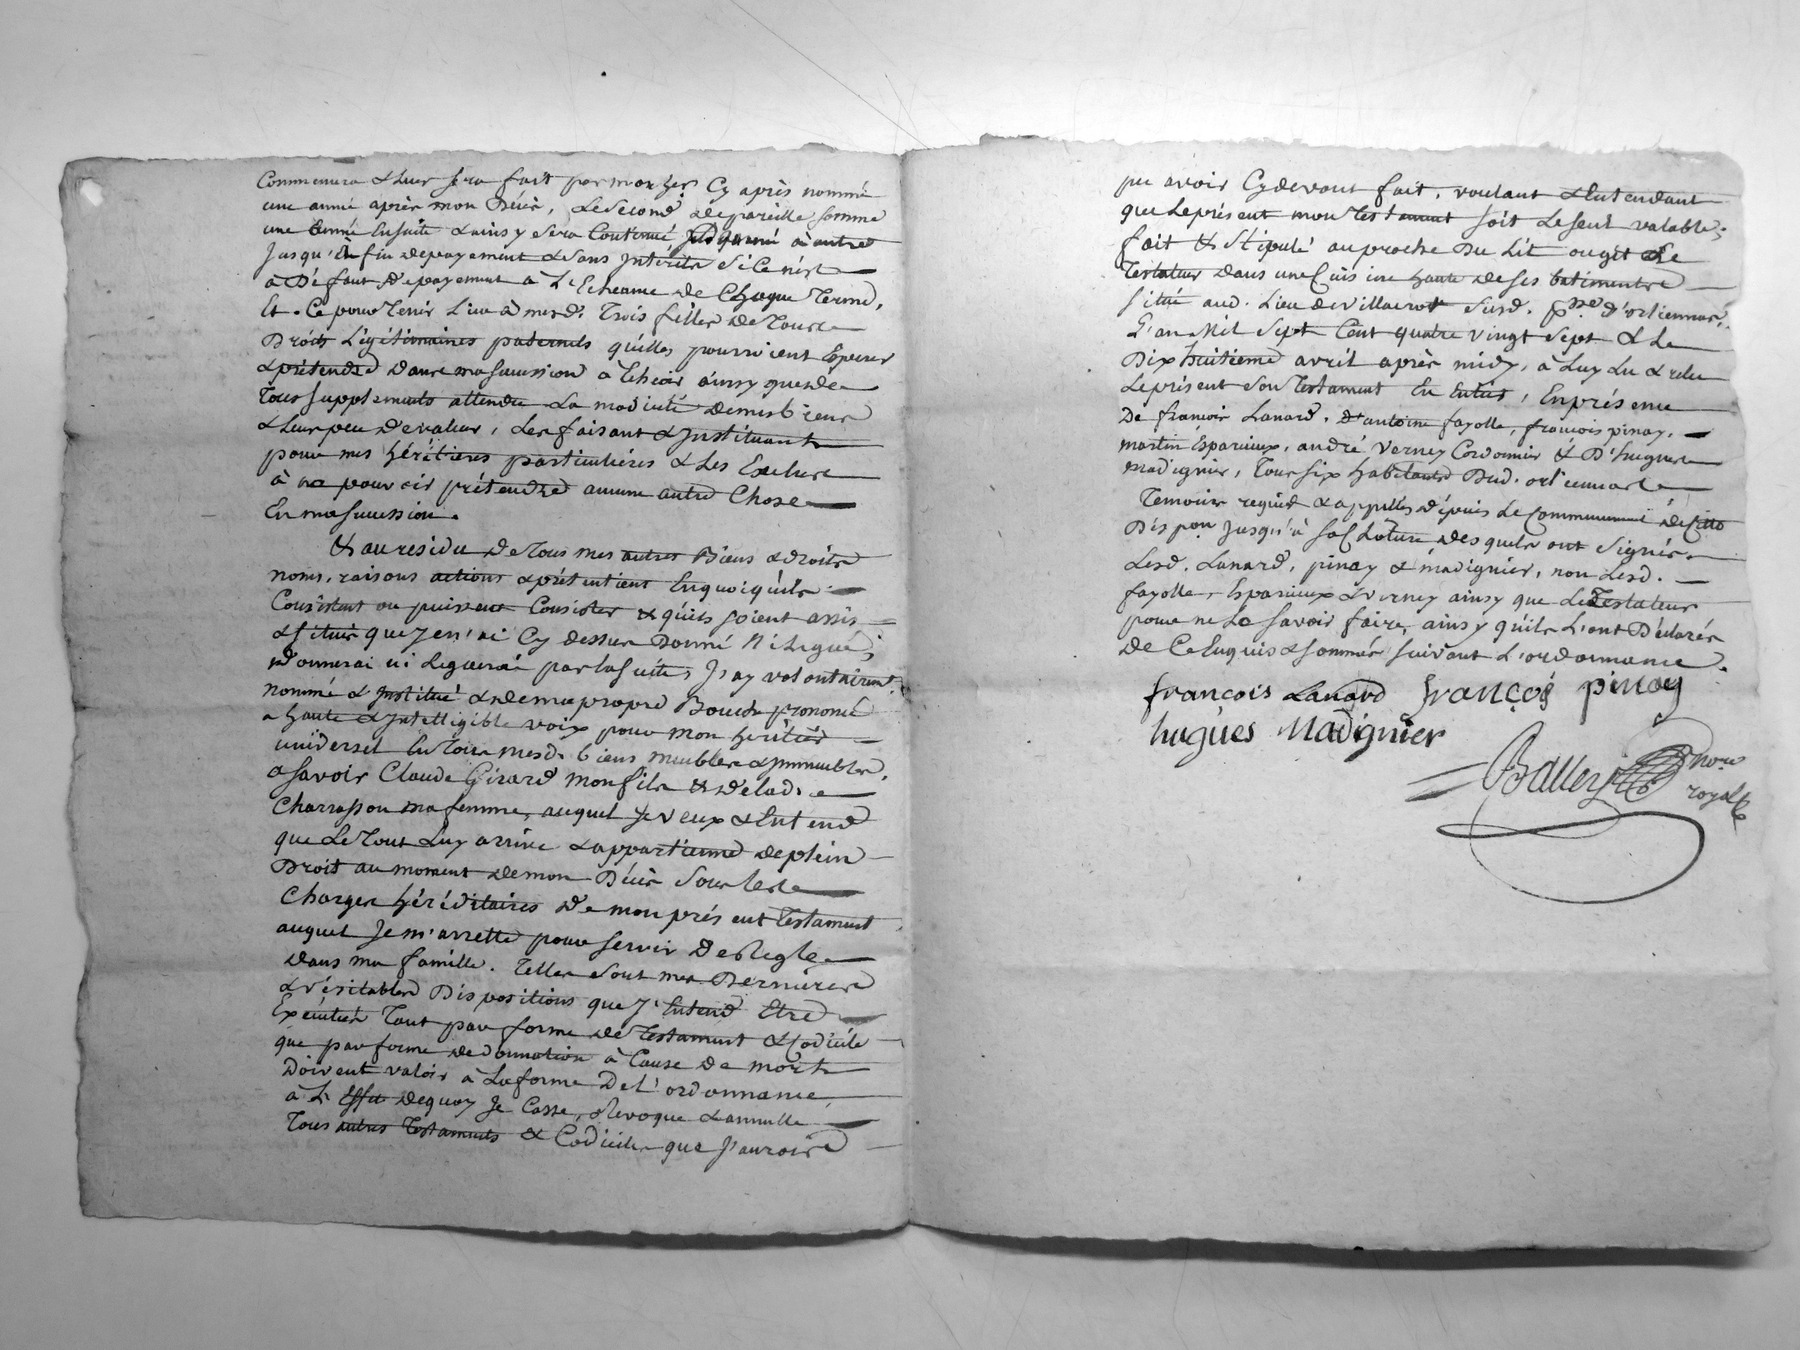 Commencera & leur sera fait par mon her Cy après nommé
une année après mon Décès, Le second de pareille somme
une année Ensuitte & ainsy sera Continué d'année à autre
Jusqu'à fin de payement & sans Intérêts si Ce n'est
à Défaut de payement à L'Echeance de Chaque Terme,
Et. Ce pour Tenir Lieu à mesd. Trois filles de Tours
Droits Légitimaires paternels qu'elles pourroient Esperer
& prétendre dans ma succession à Echeoir ainsy que de
Tous supplements attendu La modicité de mes biens
& Leur peu de valeur, Les faisant & Instituant
pour mes héritieres particulières & Les Exclure
à ne pouvoir prétendre aucune autre Chose
En ma succession.
& au residu de Tous mes autres Biens & droits
noms, raisons actions & prétentions En quoi qu'ils
Consistent ou puissent Consister & qu'ils soient assis
& situés que Je n'ai Cy dessus Donné N'i Legué,
donnerai ni Leguerai par la suite, J'ay volontairemt.
nommé & Institué & de ma propre Bouche prononcé
a haute & Intelligible voix pour mon héritier
universel En Tous mesd. biens meubles & Immeubles,
a savoir Claude Girard mon fils & de lad.
Charrasson ma femme, auquel Je veux & Entend
que Le Tout Luy arrive & appartienne de plein
Droit au moment de mon Décès sous les
Charges héréditaires de mon présent Testament
auquel Je m'arrette pour servir de Regle
dans ma famille. Telles sont mes Dernieres
& véritables Dispositions que J'Entend Etre
Exécutées Tant par forme de Testament & Codicile
que par forme de donnation à Cause de mort
Doivent valoir à La forme De L'ordonnance,
à L'Effet de quoy Je Casse, Revoque & annulle
Tous autres Testaments & Codiciles que J'aurois
pu avoir Cy devant fait, voulant & Entendant
que Le présent mon Testament soit Le seul valable;
fait & stipulé au proche Du Lit ou git Le
Testateur dans une Cuisine haute de ses batiments
situé aud. Lieu de Villacrot susd. psse d'orliennas,
L'an Mil Sept Cent quatre vingt sept & Le
Dix huitieme avril après midy, à Luy Lu & relu
Le présent son Testament En Entier, En présence
De françois Lanard, d'antoine fayolle, françois pinay,
martin Esparieux, andré Verney Cordonnier & D'hugues
Madignier, Tous six habitants Dud. orliennas
Temoins requis & appellés depuis Le Commencement de Cette
Dispon Jusqu'à sa Cloture, desquels ont signés
Lesd. Lanard, pinay & madignier, non Lesd.
fayolle, Esparieux & verney ainsy que Le Testateur
pour ne Le savoir faire, ainsy qu'ils L'ont Déclarés
De Ce Enquis & sommés suivant L'ordonnance.
françois Lanard françois pinay
hugues Madignier
nore
royal